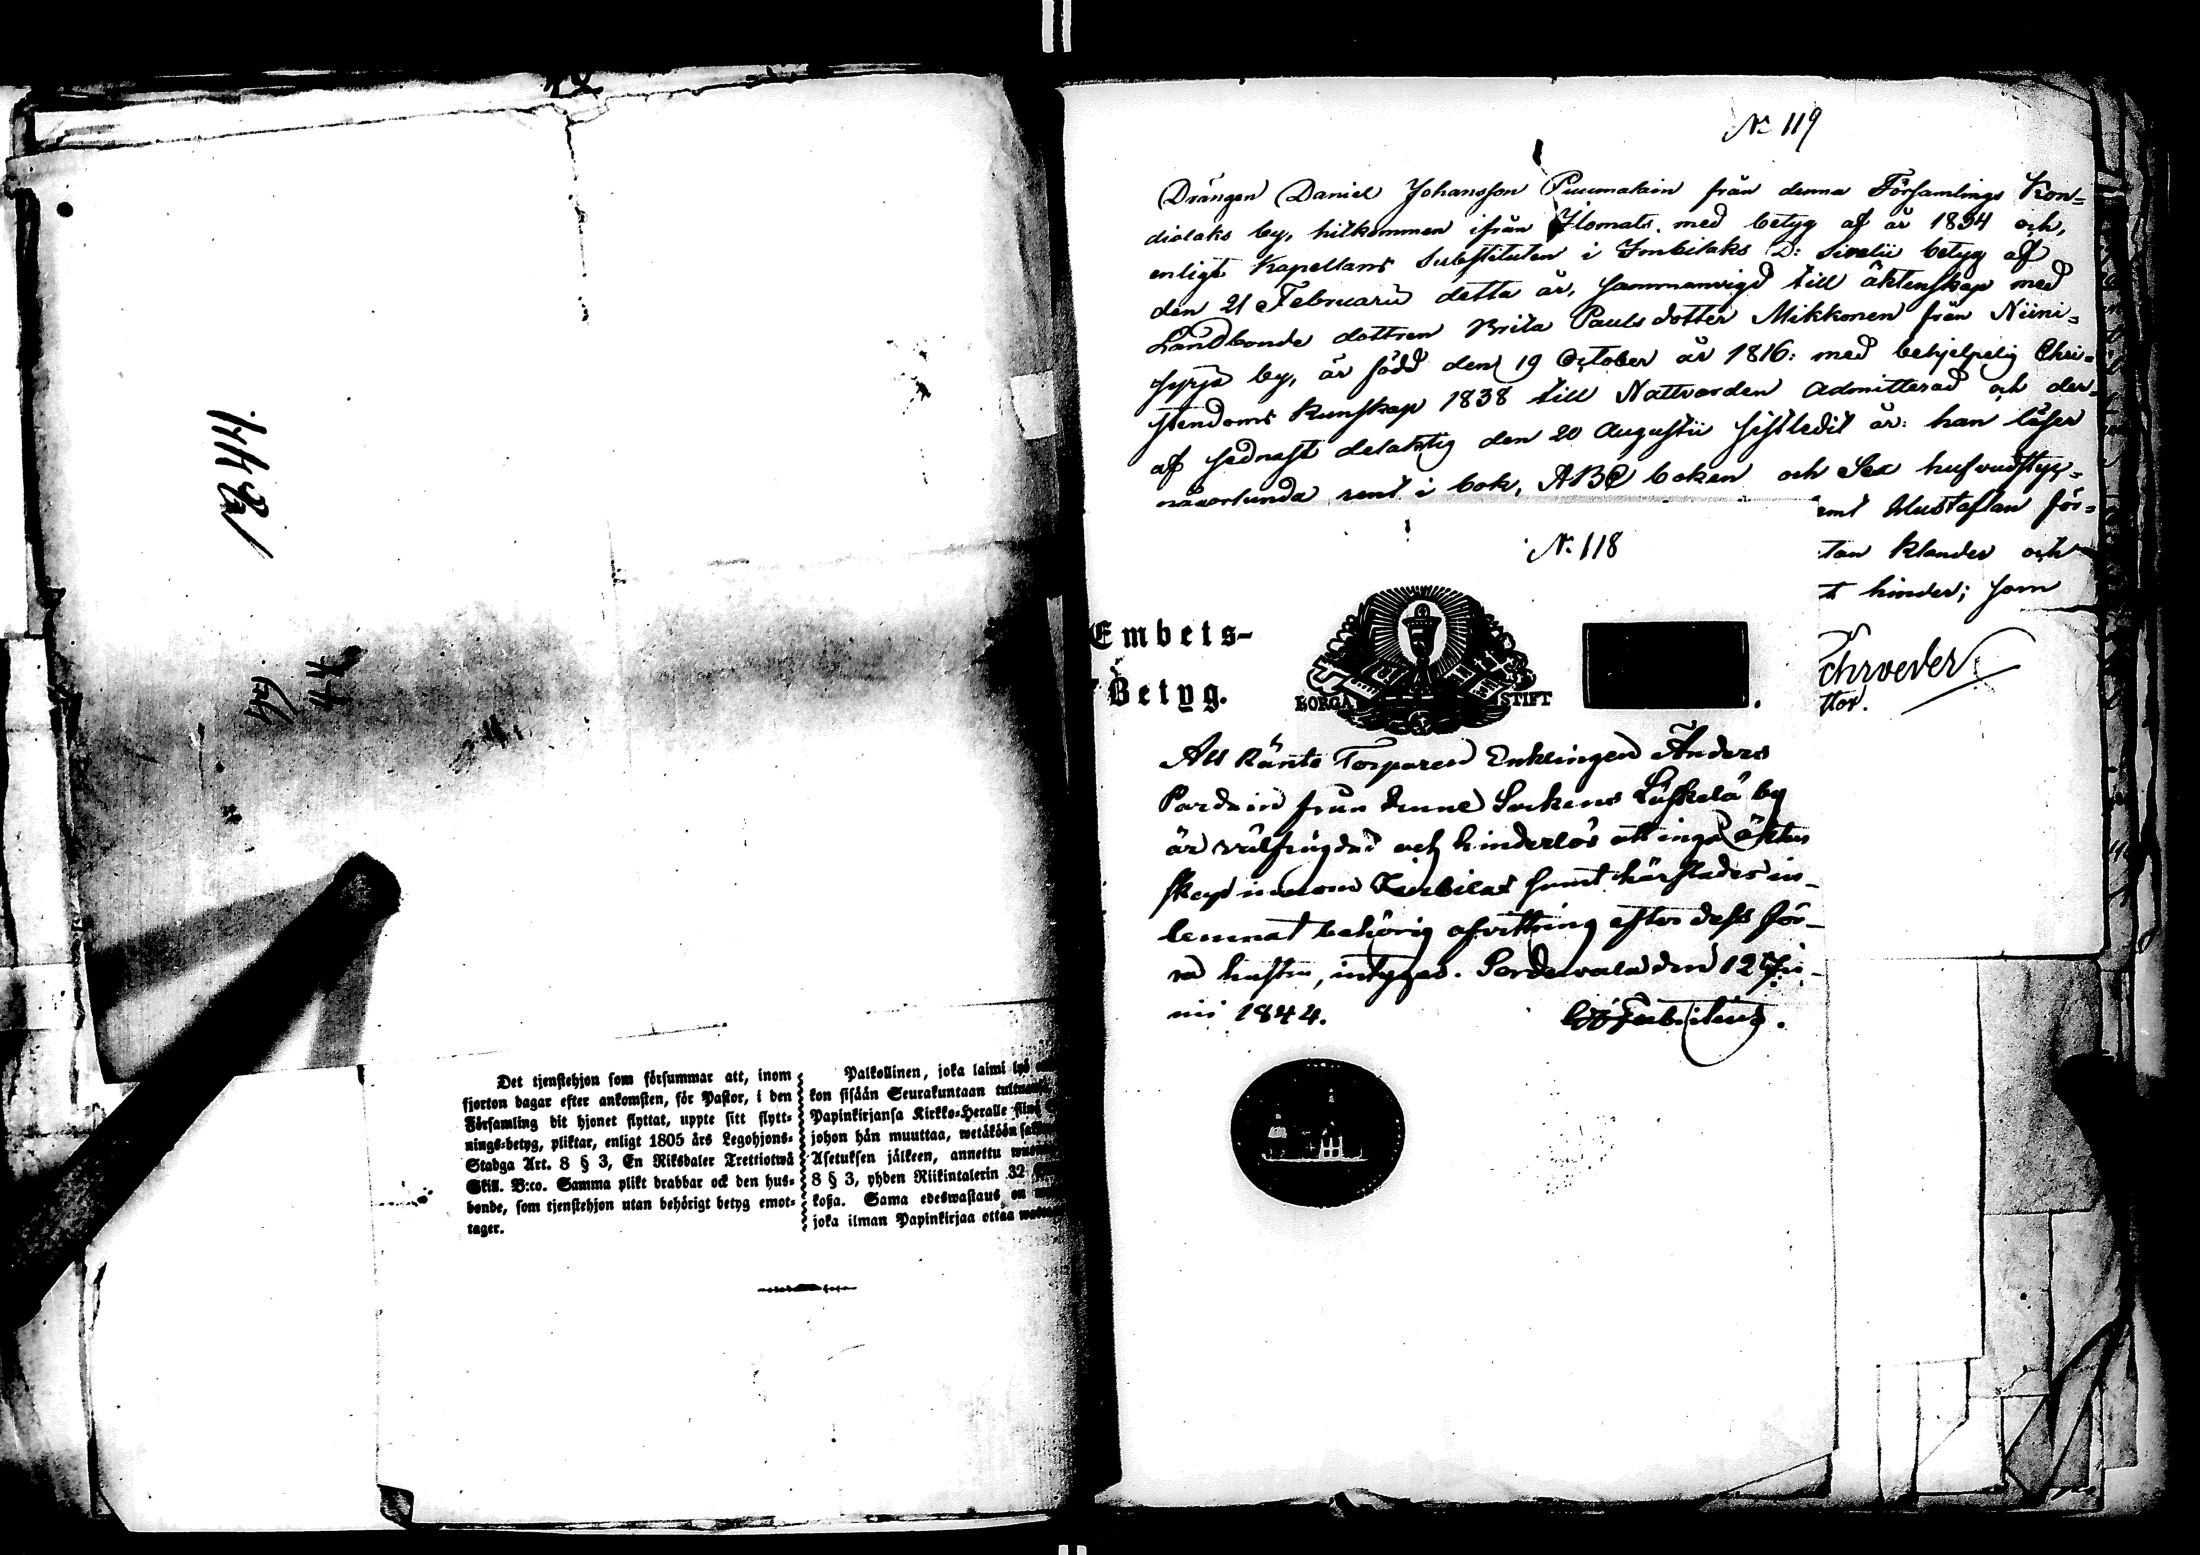 1844
Det tjenstehjon som försummar att, inom
fjorton dagar efter ankomsten, för Pastor, i den
Församling dit hjonet flyttat, uppte sitt flytt-
nings-betyg, pliktar, enligt 1805 års Legohjons-
Stadga Art. 8 § 3, En Riksdaler Trettiotwå
Skill. B:co. Samma plikt drabbar ock den hus-
bonde, som tjenstehjon utan behörigt betyg emot-
tager.
Palkollinen, joka laimi lyö
kon sisään Seurakuntaan
Papinkirjansa Kirkko-Heralle
johon hän muuttaa, wetäköön
Asetuksen jälkeen, annettu
8 § 3, yhden Riikintalerin 32
kosta. Sama edeswastaus on
joka ilman Papinkirjaa ottaa
No 119
Drängen Daniel Johansson Puumalain från denna Församlings Kon=
diolaks by, hitkommen ifrån Ilomats. med betyg af år 1834 och,
enligt Kapellans Substituten i Imbilaks D: Sirelii betyg af
den 21 Februarii detta år, sammanvigd till äktenskap med
Landbonde dottren Brita Pauls dotter Mikkonen från Niini=
syrjä by, är född den 19 October år 1816: med behjelpelig Chri=
stendoms kunskap 1838 till Nattvarden admitterad och der=
af sednast delaktig den 20 Augustii sistledit år: han läser
någorlunda rent i bok, ABC boken och Sex hufvudstyc=
emt Hustaflan för=
tan klander och
hinder; som
N. 118
Embets-
Betyg.
BORGÅ STIFT
Att Ränte Torparen Enklingen Anders
Pardain från denne Sockens Läskelä by
är välfrägdad och hinderlös att ingå äkten
skap innom Imbilax samt härstädes in-
lemnat behörig afvittring efter dess för-
ra hustru, intygas. Sordavala den 12 Ju-
nii 1844.